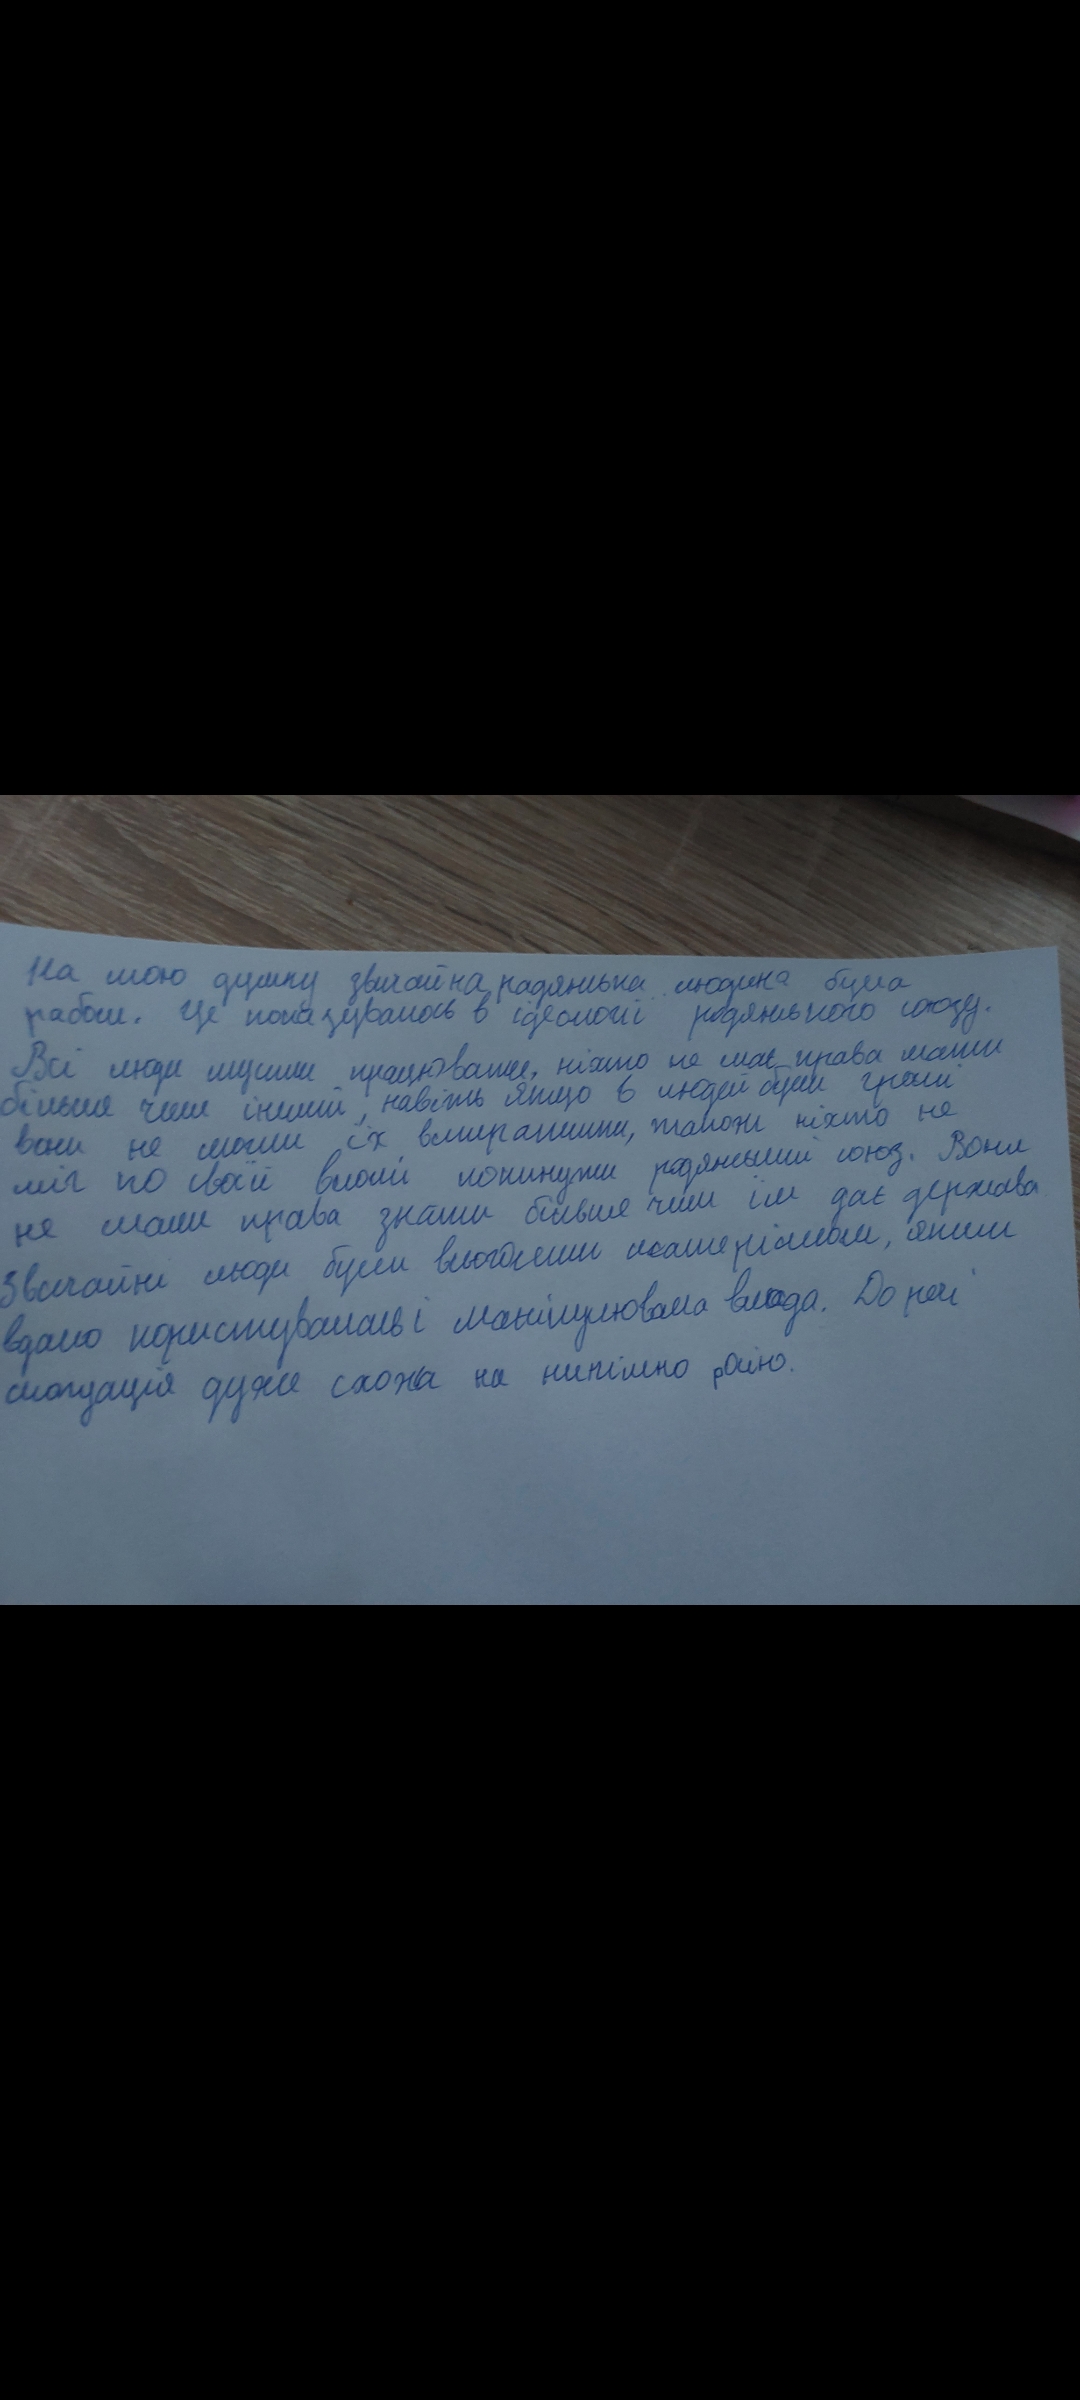 На мою думку звичайна радянська людина була
рабом. Це показувалось в ідеології радянського союзу.
Всі люди мусили працювати, ніхто не має права мати
більше чим інший, навіть якщо в людей були гроші
вони не могли їх витратити, також ніхто не
міг по своїй волі покинути радянський союз. Вони
не мали права знати більше чим їм дає держава
Звичайні люди були матеріалом, яким
вдало користувалась і маніпулювала влада. До речі
ситуація дуже схожа на нинішню росію.